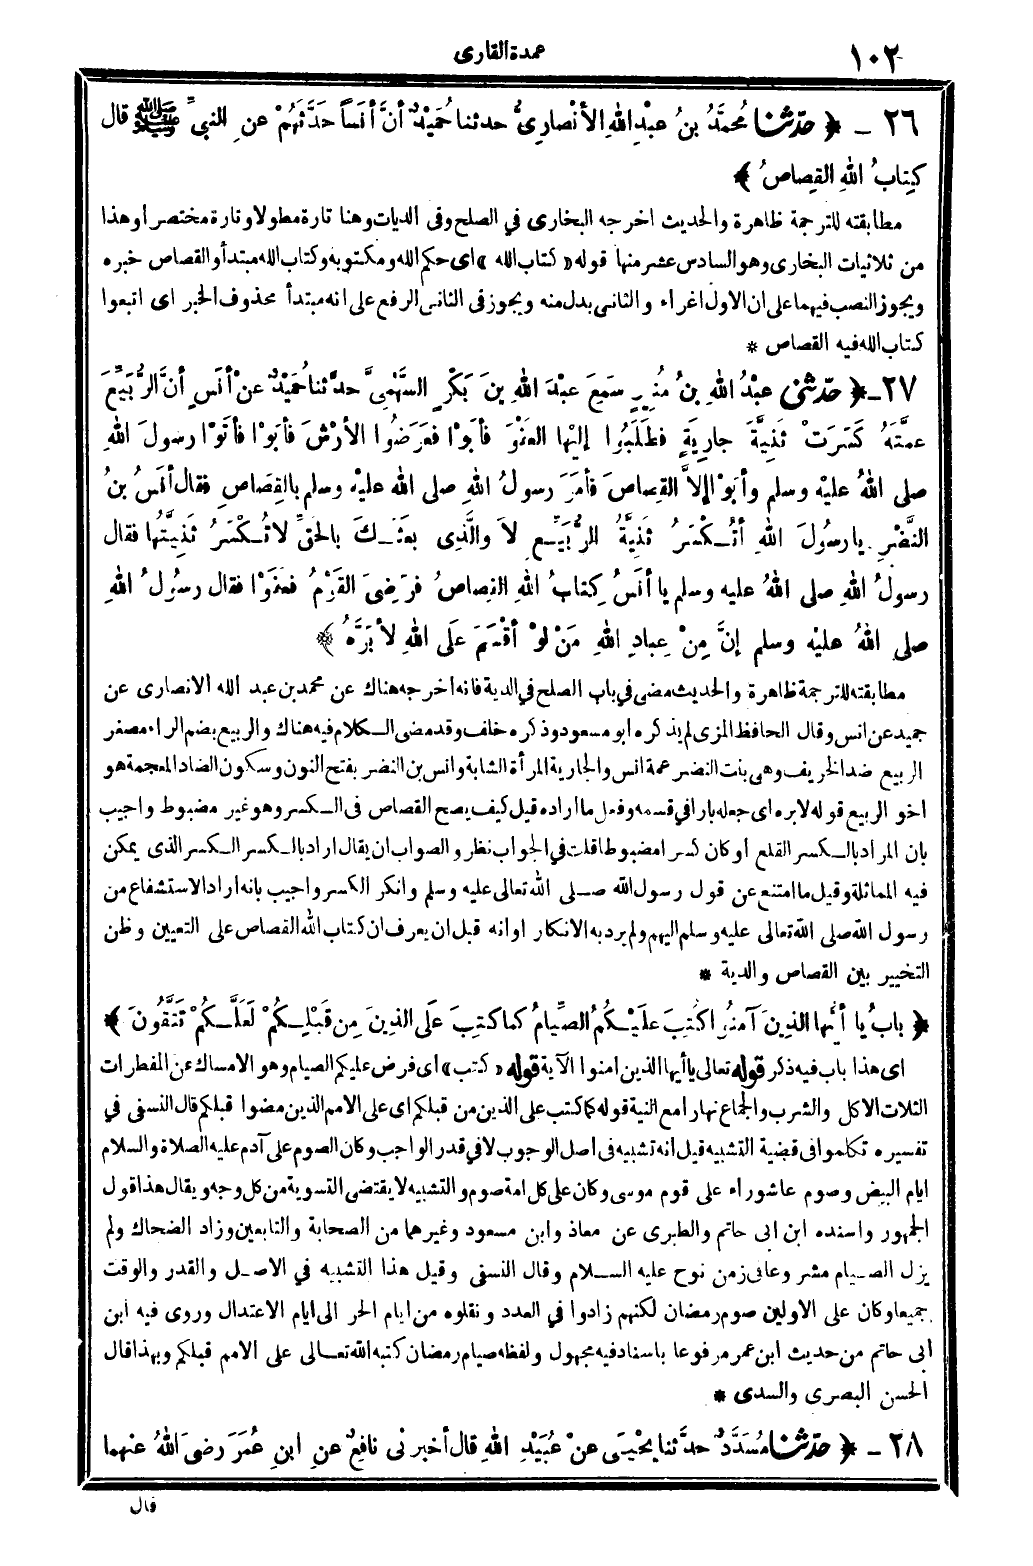 ١٠٢
عمدة القارى
٢٦ ـ ﴿ حدّثنا مُحمَّدُ بنُ عبْدِ اللهِ الأنْصارِىُّ حدثنا حُمَيْدٌ أنَّ أنَساً حَدَّثَهُمْ عنِ النبيِّ ﷺ قال
كِتابُ اللهِ القِصاصُ ﴾
مطابقته للترجمة ظاهرة والحديث اخرجه البخارى في الصلح وفى الديات وهنا تارة مطولا وتارة مختصرا وهذا
من ثلاثيات البخارى وهو السادس عشر منها قوله «كتاب الله» اى حكم الله ومكتوبه وكتاب الله مبتدأ والقصاص خبره
ويجوز النصب فيهما على ان الاول اغراء والثانى بدل منه ويجوز فى الثانى الرفع على انه مبتدأ محذوف الخبر اى اتبعوا
كتاب الله فيه القصاص *
٢٧ ـ ﴿ حدّثنى عبْدُ اللهِ بنُ مُنِيرٍ سَمِعَ عبْدَ اللهِ بنَ بَكْرٍ السَّهْمِىَّ حدثنا حُمَيْدٌ عنْ أنَسٍ أنَّ الرُّبَيِّعَ
عمَّتَهُ كَسَرَتْ ثَنِيَّةَ جارِيَةٍ فطَلَبُوا إليْها العَفْوَ فأبَوْا فعَرَضُوا الأرْشَ فأبَوْا فأتَوْا رسولَ اللهِ
صلى اللهُ عليْه وسلم وأبَوْا إلاَّ القِصاصَ فأمَرَ رسولُ اللهِ صلى الله عليْه وسلم بالقِصاصِ فقال أنَسُ بنُ
النَّضْرِ يا رسُولَ اللهِ أتُكْسَرُ ثَنِيَّةُ الرُّبَيِّعِ لاَ والَّذِى بعَثَكَ بالحَقِّ لا تُكْسَرُ ثَنِيَّتُها فقال
رسولُ اللهِ صلى اللهُ عليه وسلم يا أنَسُ كِتابُ اللهِ القِصاصُ فرَضِىَ القَوْمُ فعَفَوْا فقال رسُولُ اللهِ
صلى اللهُ عليْه وسلم إنَّ مِنْ عِبادِ اللهِ مَنْ لوْ أقْسَمَ عَلَى اللهِ لأبَرَّهُ ﴾
مطابقته للترجمة ظاهرة والحديث مضى في باب الصلح في الدية فانه اخرجه هناك عن محمد بن عبد الله الانصارى عن
حميد عن انس وقال الحافظ المزى لم يذكره ابو مسعود وذكره خلف وقد مضى الكلام فيه هناك والربيع بضم الراء مصغر
الربيع ضد الخريف وهى بنت النضر عمة انس والجارية المرأة الشابة وانس بن النضر بفتح النون وسكون الضاد المعجمة هو
اخو الربيع قوله لابره اى جعله بارا في قسمه وفعل ما اراده قيل كيف يصح القصاص فى الكسر وهو غير مضبوط واجيب
بان المراد بالكسر القلع او كان كسرا مضبوطا قلت في الجواب نظر والصواب ان يقال اراد بالكسر الكسر الذى يمكن
فيه المماثلة وقيل ما امتنع عن قول رسول الله صلى الله تعالى عليه وسلم وانكر الكسر واجيب بانه اراد الاستشفاع من
رسول الله صلى الله تعالى عليه وسلم اليهم ولم يرد به الانكار او انه قبل ان يعرف ان كتاب الله القصاص على التعيين وظن
التخيير بين القصاص والدية *
﴿ بابُ يا أيُّها الذِينَ آمنُوا كُتِبَ علَيْكُمُ الصِّيامُ كما كتِبَ عَلَى الذِينَ مِن قَبْلِكُمْ لَعَلَّكُمْ تَتَّقُونَ ﴾
اى هذا باب فيه ذكر قوله تعالى يا أيها الذين امنوا الآية قوله «كتب» اى فرض عليكم الصيام وهو الامساك عن المفطرات
الثلاث الاكل والشرب والجماع نهارا مع النية قوله كما كتب على الذين من قبلكم اى على الامم الذين مضوا قبلكم قال النسفى في
تفسيره تكلموا فى قضية التشبيه قيل انه تشبيه فى اصل الوجوب لا في قدر الواجب وكان الصوم على آدم عليه الصلاة والسلام
ايام البيض وصوم عاشوراء على قوم موسى وكان على كل امة صوم والتشبيه لا يقتضى التسوية من كل وجه ويقال هذا قول
الجمهور واسنده ابن ابى حاتم والطبرى عن معاذ وابن مسعود وغيرهما من الصحابة والتابعين وزاد الضحاك ولم
يزل الصيام مشروعا فى زمن نوح عليه السلام وقال النسفى وقيل هذا التشبيه في الاصل والقدر والوقت
جميعا وكان على الاولين صوم رمضان لكنهم زادوا في العدد ونقلوه من ايام الحر الى ايام الاعتدال وروى فيه ابن
أبى حاتم من حديث ابن عمر مرفوعا باسناد فيه مجهول ولفظه صيام رمضان كتبه الله تعالى على الامم قبلكم وبهذا قال
الحسن البصرى والسدى *
٢٨ ـ ﴿ حدّثنا مُسَدَّدٌ حدَّثنا يَحْيَى عنْ عُبَيْدِ اللهِ قال أخبرنى نافِعٌ عنِ ابنِ عُمَرَ رضىَ اللهُ عنهما
قال